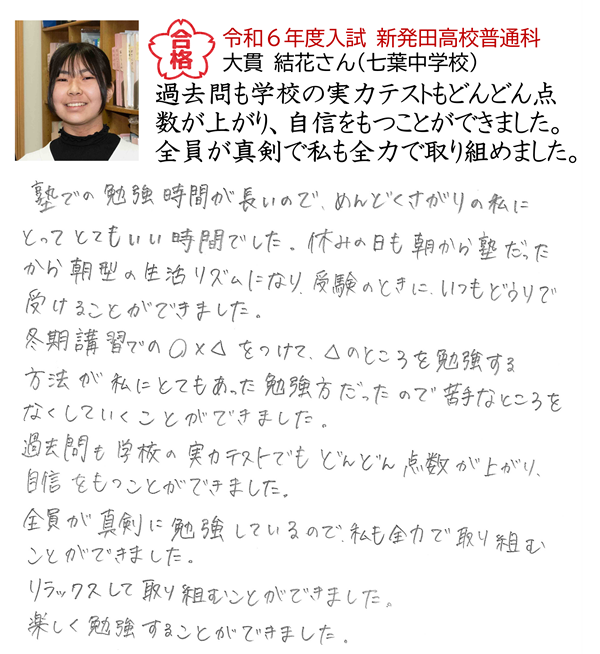 合格
令和6年度入試 新発田高校普通科
大貫 結花さん(七葉中学校)
過去問も学校の実力テストもどんどん点
数が上がり、自信をもつことができました。
全員が真剣で私も全力で取り組めました。
塾での勉強時間が長いので、めんどくさがりの私に
とってとてもいい時間でした。休みの日も朝から塾だった
から朝型の生活リズムになり、受験のときに、いつもどうりで
受けることができました。
冬期講習での○×△をつけて、△のところを勉強する
方法が私にとてもあった勉強方だったので苦手なところを
なくしていくことができました。
過去問も学校の実力テストでもどんどん点数が上がり、
自信をもつことができました。
全員が真剣に勉強しているので、私も全力で取り組む
ことができました。
リラックスして取り組むことができました。
楽しく勉強することができました。